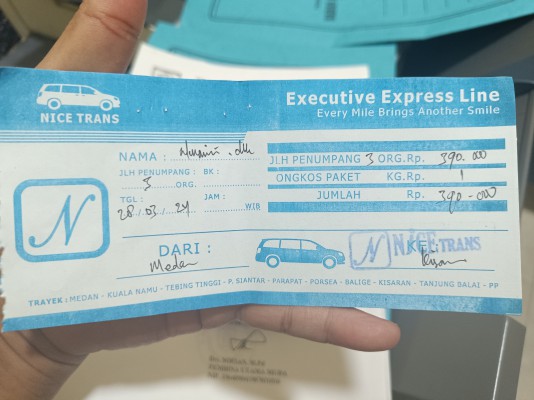 NICE TRANS
Executive Express Line
Every Mile Brings Another Smile
NAMA : Nuraini . dkk
JLH PENUMPANG : BK :
3 ORG.
TGL : JAM :
28 / 03 / 24 WIB
JLH PENUMPANG 3 ORG.Rp. 390.000
ONGKOS PAKET KG.Rp.
JUMLAH Rp. 390.000
N
DARI :
Medan
N NICE TRANS
KE :
Kisaran
TRAYEK : MEDAN - KUALA NAMU - TEBING TINGGI - P. SIANTAR - PARAPAT - PORSEA - BALIGE - KISARAN - TANJUNG BALAI - PP